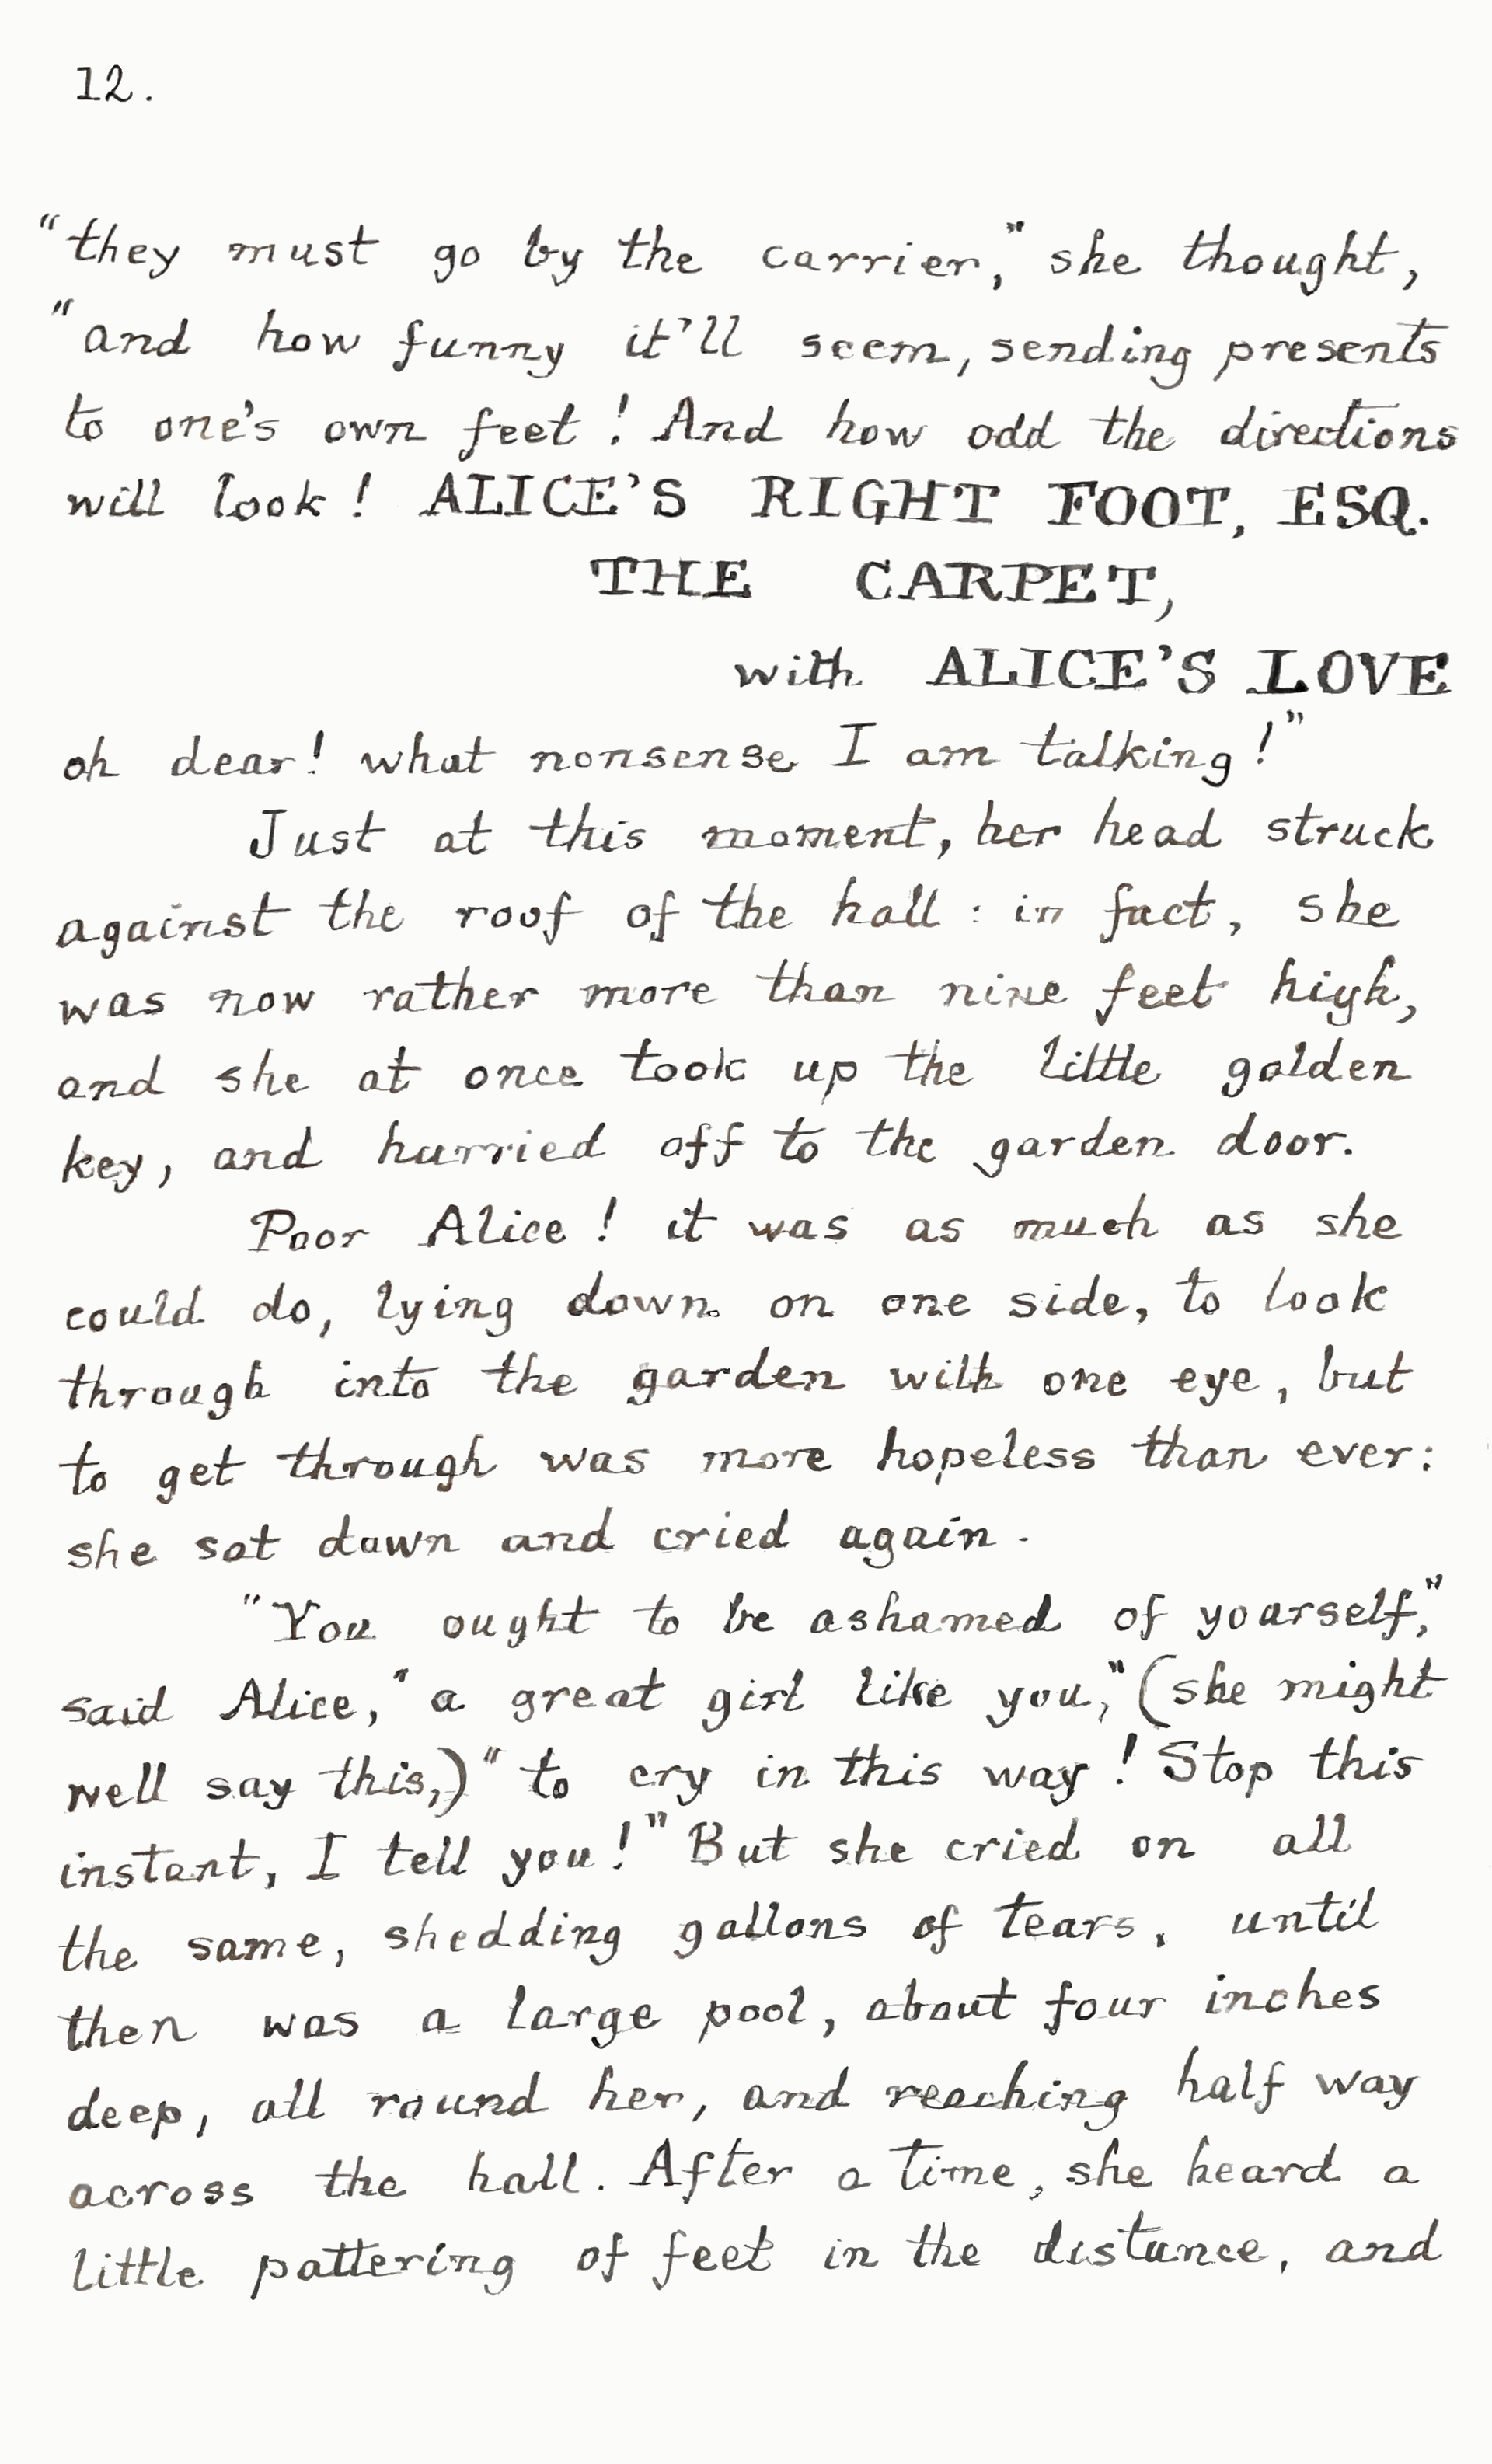 12.
"they must go by the carrier," she thought,
"and how funny it'll seem, sending presents
to one's own feet! And how odd the directions
will look! ALICE'S RIGHT FOOT, ESQ.
THE CARPET,
with ALICE'S LOVE
oh dear! what nonsense I am talking!"
Just at this moment, her head struck
against the roof of the hall: in fact, she
was now rather more than nine feet high,
and she at once took up the little golden
key, and hurried off to the garden door.
Poor Alice! it was as much as she
could do, lying down on one side, to look
through into the garden with one eye, but
to get through was more hopeless than ever:
she sat down and cried again.
"You ought to be ashamed of yourself,"
said Alice, "a great girl like you," (she might
well say this,) "to cry in this way! Stop this
instant, I tell you!" But she cried on all
the same, shedding gallons of tears, until
then was a large pool, about four inches
deep, all round her, and reaching half way
across the hall. After a time, she heard a
little pattering of feet in the distance, and